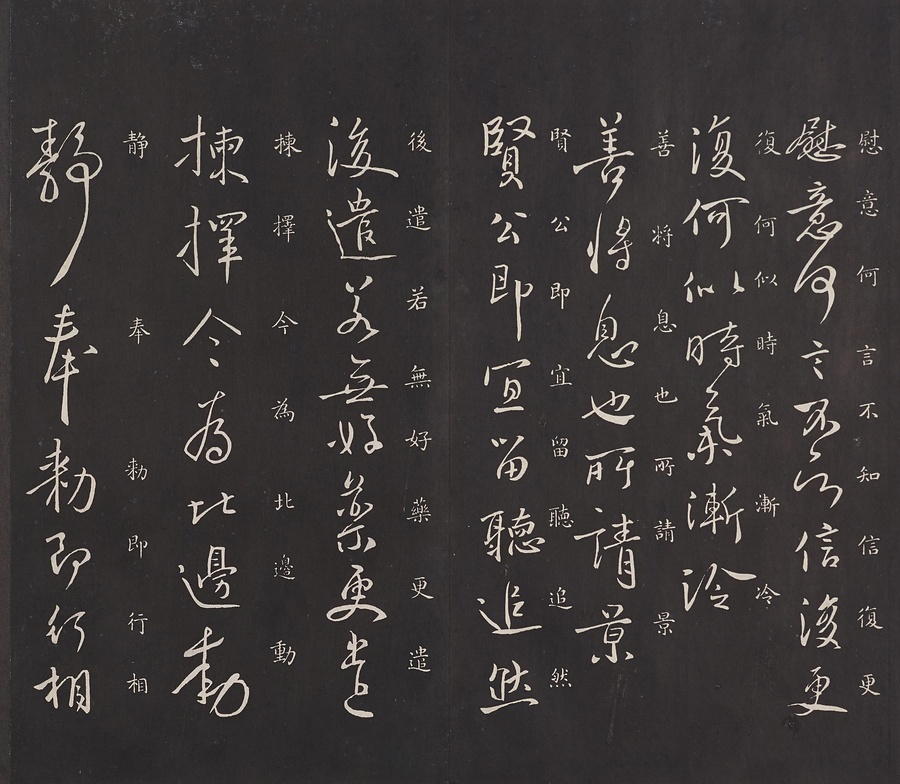 慰意何言不知信復更
慰意何言不知信復更
復何似時氣漸冷
復何似時氣漸冷
善将息也所請景
善将息也所請景
賢公即宜留聽追然
賢公即宜留聽追然
後遣若無好藥更遣
後遣若無好藥更遣
揀擇今為北邊動
揀擇今為北邊動
静奉勑即行相
静奉勑即行相